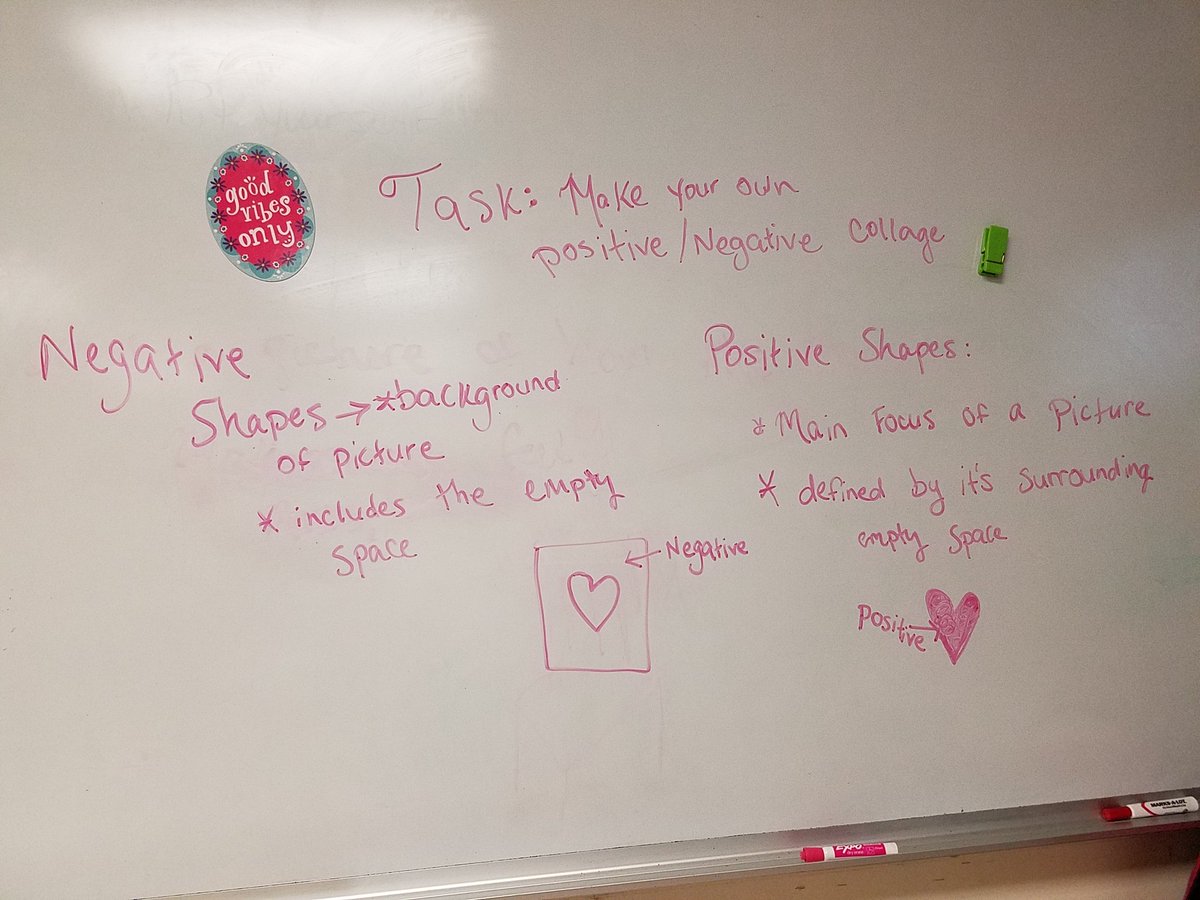 good
vibes
only
Task: Make your own
positive/Negative collage
Negative
Shapes → *background
of picture
* includes the empty
space
Negative
Positive Shapes:
* Main Focus of a Picture
* defined by it's surrounding
empty space
Positive
EXPO
MARKS-A-LOT